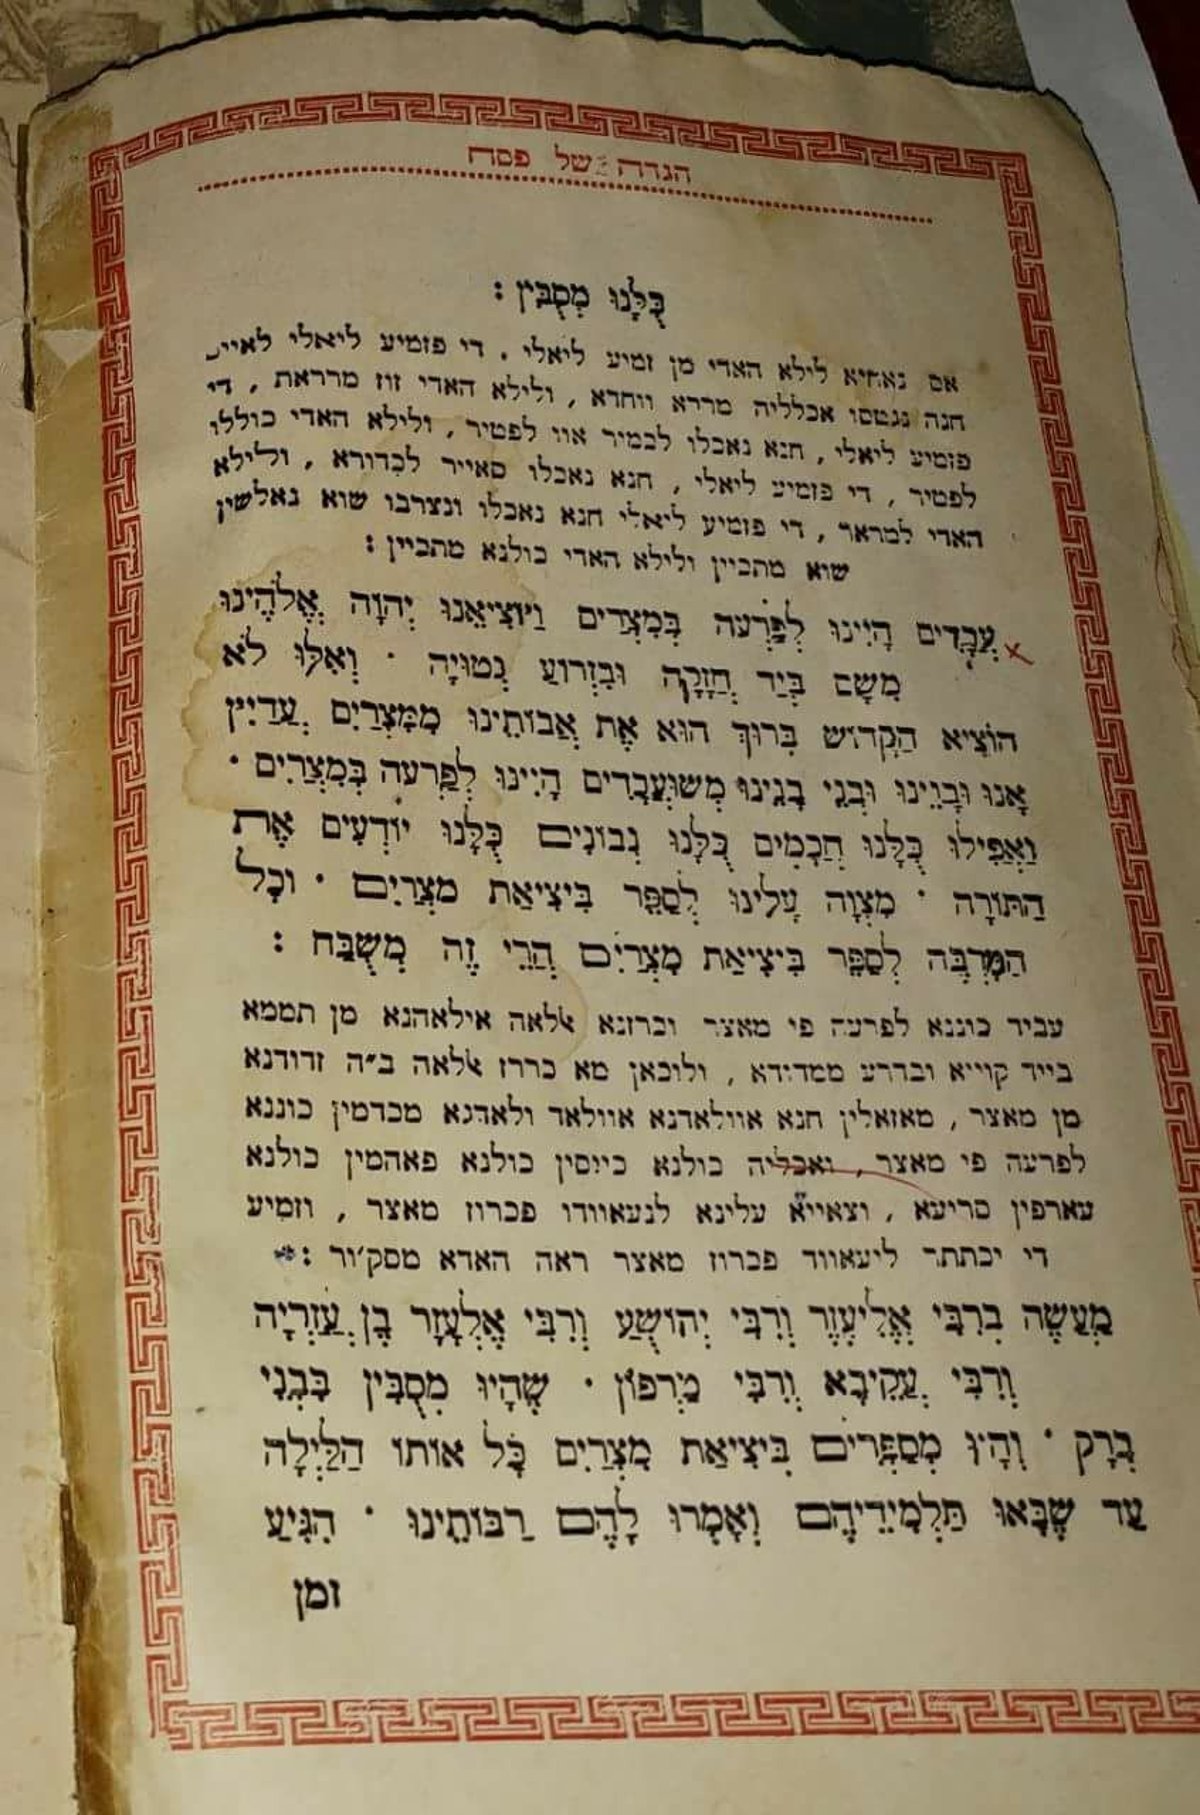 הגדה של פסח
כֻּלָּנוּ מְסֻבִּין :
אס נאחיא לילא האדי מן זמיע ליאלי . די פזמיע ליאלי לאייר
חנה נגטסו אכלליה מררא ווחדא , ולילא האדי זוז מרראת , די
פזמיע ליאלי , חנא נאכלו לכמיר אוו לפטיר , ולילא האדי כוללו
לפטיר , די פזמיע ליאלי , חנא נאכלו סאייר לכדורא , ולילא
האדי למראר , די פזמיע ליאלי חנא נאכלו ונצרבו שוא גאלשין
שוא מתכיין ולילא האדי כולנא מתכיין :
עֲבָדִים הָיִינוּ לְפַרְעֹה בְּמִצְרַיִם וַיּוֹצִיאֵנוּ יְהוָה אֱלֹהֵינוּ
מִשָּׁם בְּיָד חֲזָקָה וּבִזְרוֹעַ נְטוּיָה · וְאִלּוּ לֹא
הוֹצִיא הַקָּדוֹשׁ בָּרוּךְ הוּא אֶת אֲבוֹתֵינוּ מִמִּצְרַיִם עֲדַיִין
אָנוּ וּבָנֵינוּ וּבְנֵי בָנֵינוּ מְשׁוּעְבָּדִים הָיִינוּ לְפַרְעֹה בְּמִצְרַיִם ·
וַאֲפִילוּ כֻּלָּנוּ חֲכָמִים כֻּלָּנוּ נְבוֹנִים כֻּלָּנוּ יוֹדְעִים אֶת
הַתּוֹרָה · מִצְוָה עָלֵינוּ לְסַפֵּר בִּיצִיאַת מִצְרַיִם · וכָל
הַמַּרְבֶּה לְסַפֵּר בִּיצִיאַת מִצְרַיִם הֲרֵי זֶה מְשֻׁבָּח :
עביד כוננא לפרעה פי מאצר וכרזנא ﭏלאה אילאהנא מן תממא
בייד קוייא ובדרע ממדודא , ולוכאן מא כררז ﭏלאה ב״ה זדודנא
מן מאצר , מאזאלין חנא אוולאדנא אוולאד ולאדנא מכדמין כוננא
לפרעה פי מאצר , ואכליה כולנא כייסין כולנא פאהמין כולנא
עארפין סריעא , וצאייא עלינא לנעאוודו פכרוז מאצר , וזמיע
די יכתתר ליעאווד פכרוז מאצר ראה האדא מסק׳ור :
מַעֲשֶׂה בְרִבִּי אֱלִיעֶזֶר וְרִבִּי יְהוֹשֻׁעַ וְרִבִּי אֶלְעָזָר בֶּן עֲזַרְיָה
וְרִבִּי עֲקִיבָא וְרִבִּי טַרְפוֹן · שֶׁהָיוּ מְסֻבִּין בִּבְנֵי
בְרָק · וְהָיוּ מְסַפְּרִים בִּיצִיאַת מִצְרַיִם כָּל אוֹתוֹ הַלַּיְלָה
עַד שֶׁבָּאוּ תַּלְמִידֵיהֶם וְאָמְרוּ לָהֶם רַבּוֹתֵינוּ · הִגִּיעַ
זמן